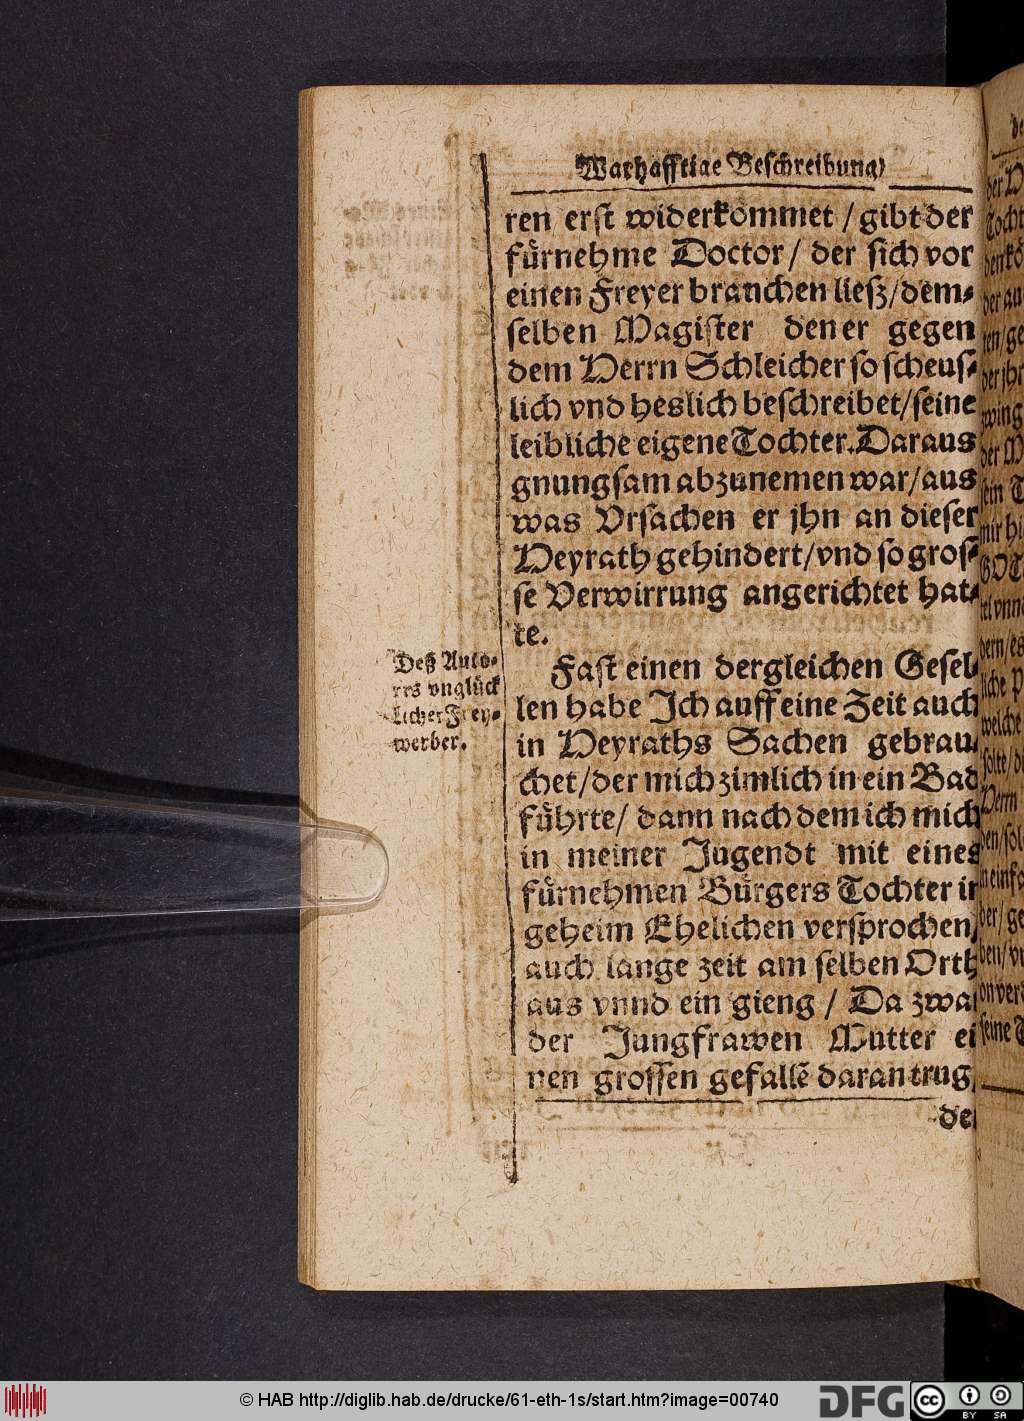 Warhafftige Beschreibung/
ren erst widerkömmet / gibt der
fürnehme Doctor / der sich vor
einen Freyer brauchen ließ / dem-
selben Magister den er gegen
dem Herrn Schleicher so scheus-
lich vnd heslich beschreibet / seine
leibliche eigene Tochter. Daraus
gnungsam abzunemen war / aus
was Vrsachen er jhn an dieser
Heyrath gehindert / vnd so gros-
se Verwirrung angerichtet hat-
te.
Deß Auto-
rrs vnglück
licher Frey-
werber.
Fast einen dergleichen Gesel-
len habe Ich auff eine Zeit auch
in Heyraths Sachen gebrau-
chet / der mich zimlich in ein Bad
führte / dann nach dem ich mich
in meiner Jugendt mit eines
fürnehmen Bürgers Tochter in
geheim Ehelichen versprochen,
auch lange zeit am selben Orth
aus vnnd ein gieng / Da zwar
der Jungfrawen Mutter ei
nen grossen gefallẽ daran trug,
der
© HAB http://diglib.hab.de/drucke/61-eth-1s/start.htm?image=00740
DFG
cc BY SA